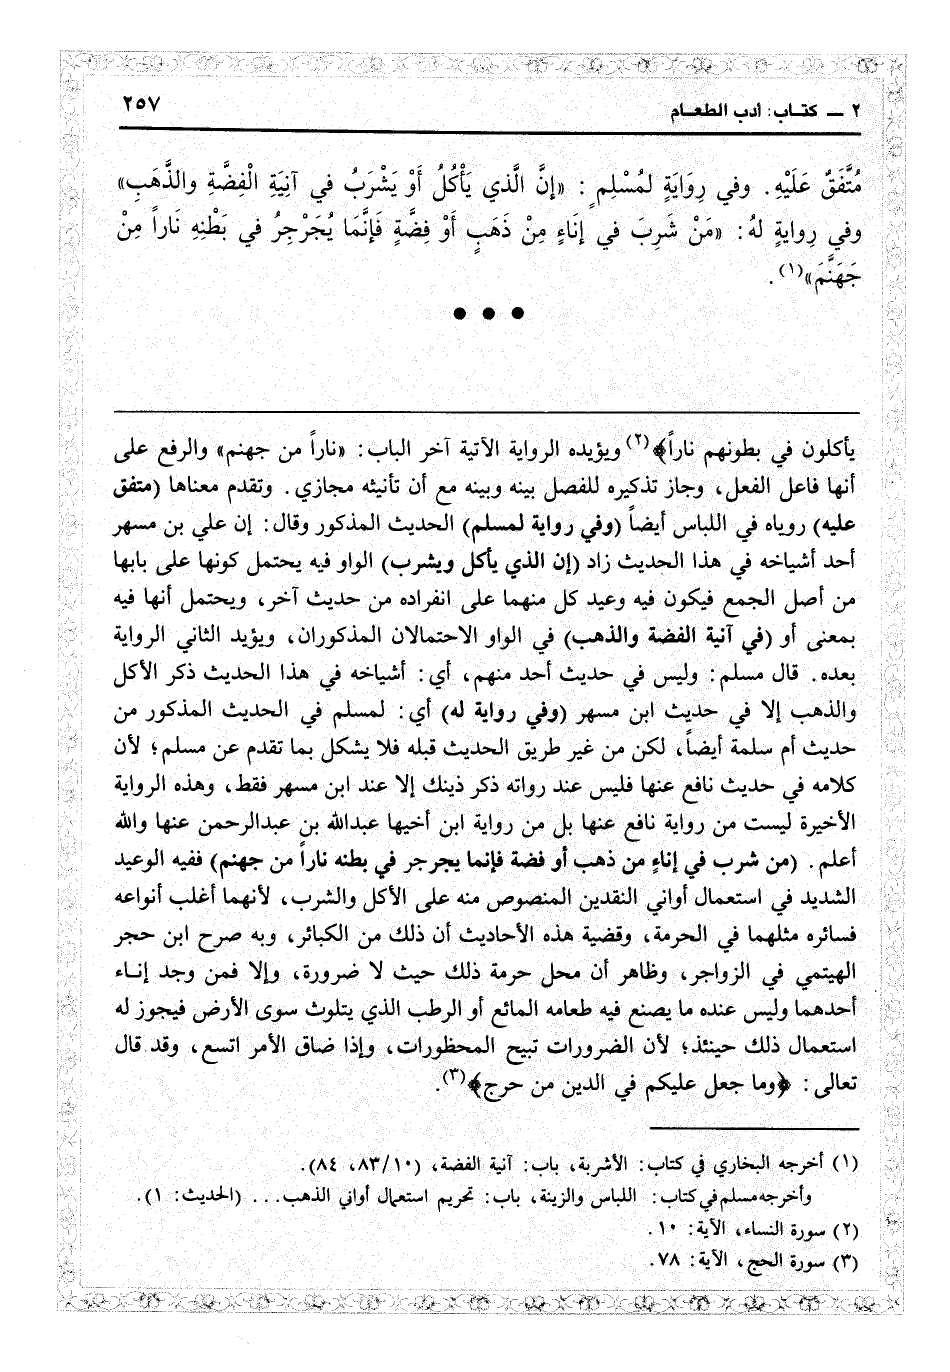 ٢ ــ كتـاب: أدب الطعـام
٢٥٧
مُتَّفَقٌ عَلَيْهِ. وفي رِوَايَةٍ لمُسْلِمٍ: «إنَّ الَّذي يَأْكُلُ أَوْ يَشْرَبُ في آنِيَةِ الْفِضَّةِ والذَّهَبِ»
وفي رِوايةٍ لهُ: «مَنْ شَرِبَ في إنَاءٍ مِنْ ذَهَبٍ أَوْ فِضَّةٍ فَإنَّمَا يُجَرْجِرُ في بَطْنِهِ نَاراً مِنْ
جَهَنَّمَ»(١).
● ● ●
يأكلون في بطونهم ناراً﴾(٢) ويؤيده الرواية الآتية آخر الباب: «ناراً من جهنم» والرفع على
أنها فاعل الفعل، وجاز تذكيره للفصل بينه وبينه مع أن تأنيثه مجازي. وتقدم معناها (متفق
عليه) روياه في اللباس أيضاً (وفي رواية لمسلم) الحديث المذكور وقال: إن علي بن مسهر
أحد أشياخه في هذا الحديث زاد (إن الذي يأكل ويشرب) الواو فيه يحتمل كونها على بابها
من أصل الجمع فيكون فيه وعيد كل منهما على انفراده من حديث آخر، ويحتمل أنها فيه
بمعنى أو (في آنية الفضة والذهب) في الواو الاحتمالان المذكوران، ويؤيد الثاني الرواية
بعده. قال مسلم: وليس في حديث أحد منهم، أي: أشياخه في هذا الحديث ذكر الأكل
والذهب إلا في حديث ابن مسهر (وفي رواية له) أي: لمسلم في الحديث المذكور من
حديث أم سلمة أيضاً، لكن من غير طريق الحديث قبله فلا يشكل بما تقدم عن مسلم؛ لأن
كلامه في حديث نافع عنها فليس عند رواته ذكر ذينك إلا عند ابن مسهر فقط، وهذه الرواية
الأخيرة ليست من رواية نافع عنها بل من رواية ابن أخيها عبدالله بن عبدالرحمن عنها والله
أعلم. (من شرب في إناءٍ من ذهب أو فضة فإنما يجرجر في بطنه ناراً من جهنم) ففيه الوعيد
الشديد في استعمال أواني النقدين المنصوص منه على الأكل والشرب، لأنهما أغلب أنواعه
فسائره مثلهما في الحرمة، وقضية هذه الأحاديث أن ذلك من الكبائر، وبه صرح ابن حجر
الهيتمي في الزواجر، وظاهر أن محل حرمة ذلك حيث لا ضرورة، وإلا فمن وجد إنـاء
أحدهما وليس عنده ما يصنع فيه طعامه المائع أو الرطب الذي يتلوث سوى الأرض فيجوز له
استعمال ذلك حينئذ؛ لأن الضرورات تبيح المحظورات، وإذا ضاق الأمر اتسع، وقد قال
تعالى: ﴿وما جعل عليكم في الدين من حرج﴾(٣).
(١) أخرجه البخاري في كتاب: الأشربة، باب: آنية الفضة، (٨٣/١٠، ٨٤).
وأخرجه مسلم في كتاب: اللباس والزينة، باب: تحريم استعمال أواني الذهب... (الحديث: ١).
(٢) سورة النساء، الآية: ١٠.
(٣) سورة الحج، الآية: ٧٨.